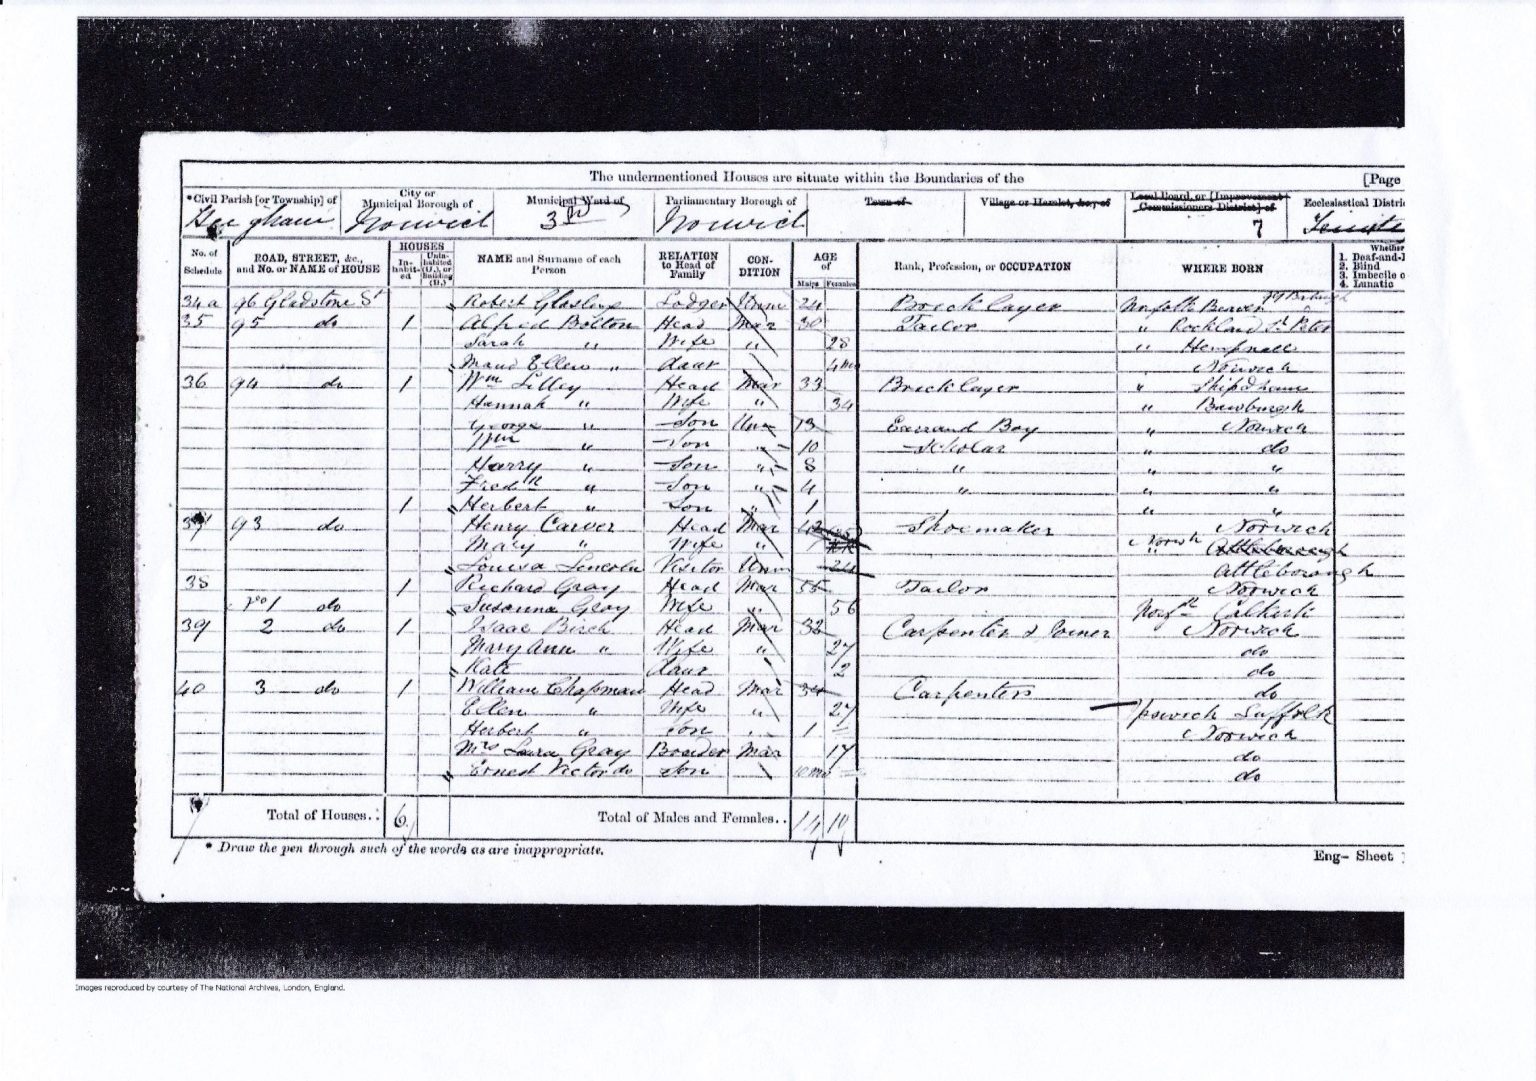 The undermentioned Houses are situate within the Boundaries of the [Page
*Civil Parish [or Township] of City or Municipal Borough of Municipal Ward of Parliamentary Borough of Town of Village or Hamlet, &c., of Local Board, or [Improvement Commissioners District] of Ecclesiastical Distric
Norwich 3rd Norwich 7
No. of Schedule ROAD, STREET, &c., and No. or NAME of HOUSE HOUSES Inhabited Uninhabited (U.), or Building (B.) NAME and Surname of each Person RELATION to Head of Family CONDITION AGE of Males Females Rank, Profession, or OCCUPATION WHERE BORN Whether 1. Deaf-and-D 2. Blind 3. Imbecile o 4. Lunatic
34a 96 Gladstone St Robert Lodger Unm 24 Bricklayer Norfolk
35 95 do 1 Alfred Bolton Head Mar 30 Tailor " Rockland St Peter
Sarah " Wife " 28 " Hempnall
Maud Ellen " daur 4 mo Norwich
36 94 do 1 Wm Lilley Head Mar 33 Bricklayer " Shipdham
Hannah " Wife " 34 " Bawburgh
George " Son Un 13 Errand Boy " Norwich
Wm " Son " 10 Scholar " do
Harry " Son " 8 " " "
Fredk " Son " 4 " " "
Herbert " Son " 1 " "
37 93 do 1 Henry Carver Head Mar Shoemaker Norwich
Mary " Wife " Attleborough
Louisa Lincoln Visitor Unm 24 Attleborough
38 1 Richard Gray Head Mar 55 Tailor Norwich
No 1 do Susanna Gray Wife " 56 Norfk
39 2 do 1 Isaac Birch Head Mar 32 Carpenter & Joiner Norwich
Mary Ann " Wife " 27 do
Kate daur 2 do
40 3 do 1 William Chapman Head Mar 34 Carpenter do
Ellen " Wife " 27 Ipswich Suffolk
Herbert " Son 1 Norwich
Mrs Laura Gray Boarder Mar 17 do
Ernest Victor do Son 10 mo do
Total of Houses.. 6 Total of Males and Females.. 14 10
* Draw the pen through such of the words as are inappropriate.
Eng- Sheet
Images reproduced by courtesy of The National Archives, London, England.